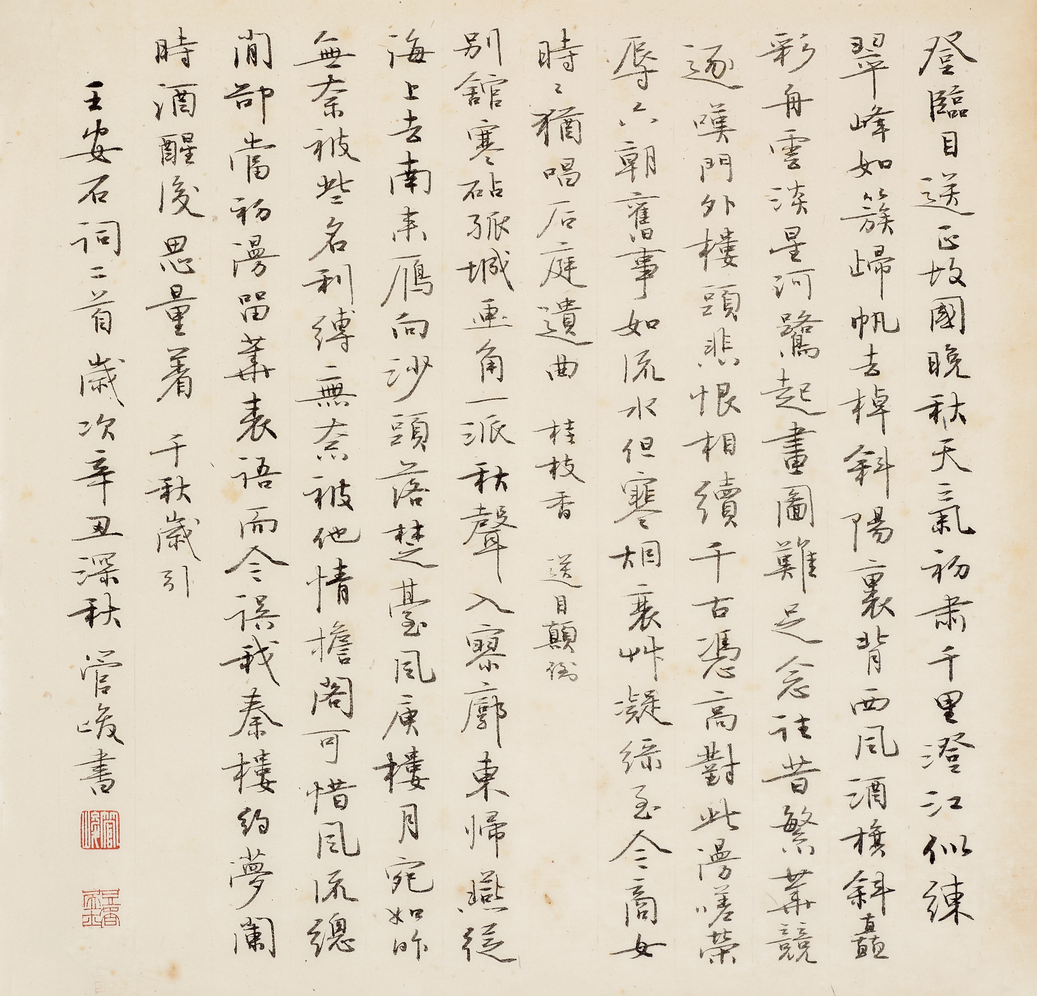 登臨目送正故國晚秋天氣初肅千里澄江似練
翠峰如簇歸帆去棹斜陽裏背西風酒旗斜矗
彩舟雲淡星河鷺起畫圖難足念往昔繁華競
逐嘆門外樓頭悲恨相續千古憑高對此漫嗟榮
辱六朝舊事如流水但寒烟衰艸凝綠至今商女
時〻猶唱后庭遺曲 桂枝香 送目顛倒
別館寒砧孤城畫角一派秋聲入寥廓東歸燕從
海上去南來雁向沙頭落楚臺風庾樓月宛如昨
無奈被些名利縛無奈被他情擔閣可惜風流總
閒卻當初漫留華表語而今誤我秦樓約夢闌
時酒醒後思量著 千秋歲引
王安石詞二首歲次辛丑深秋 管峻書